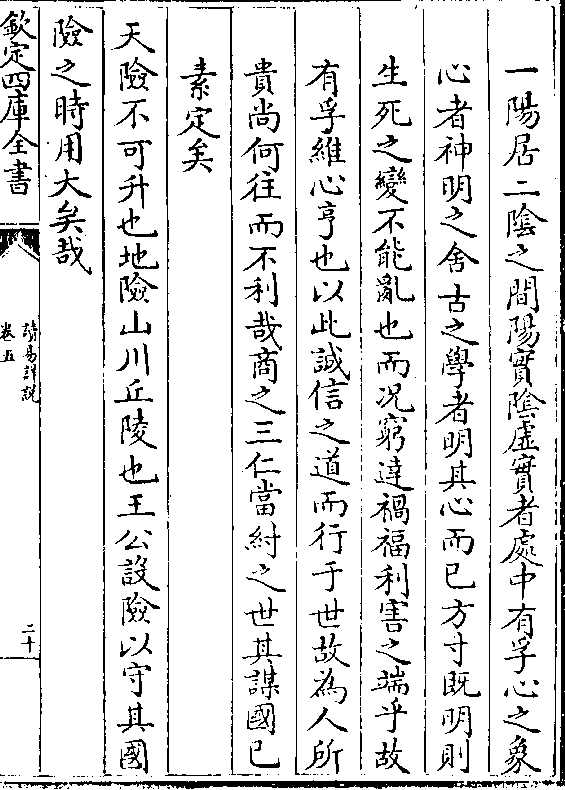 一陽居二陰之間陽實陰虛實者處中有孚心之象
心者神明之舍古之學者明其心而已方寸既明則
生死之變不能亂也而况窮達禍福利害之端乎故
有孚維心亨也以此誠信之道而行于世故為人所
貴尚何往而不利哉商之三仁當紂之世其謀國已
素定矣
天險不可升也地險山川丘陵也王公設險以守其國
險之時用大矣哉
欽定四庫全書
讀易詳說
卷五
二十